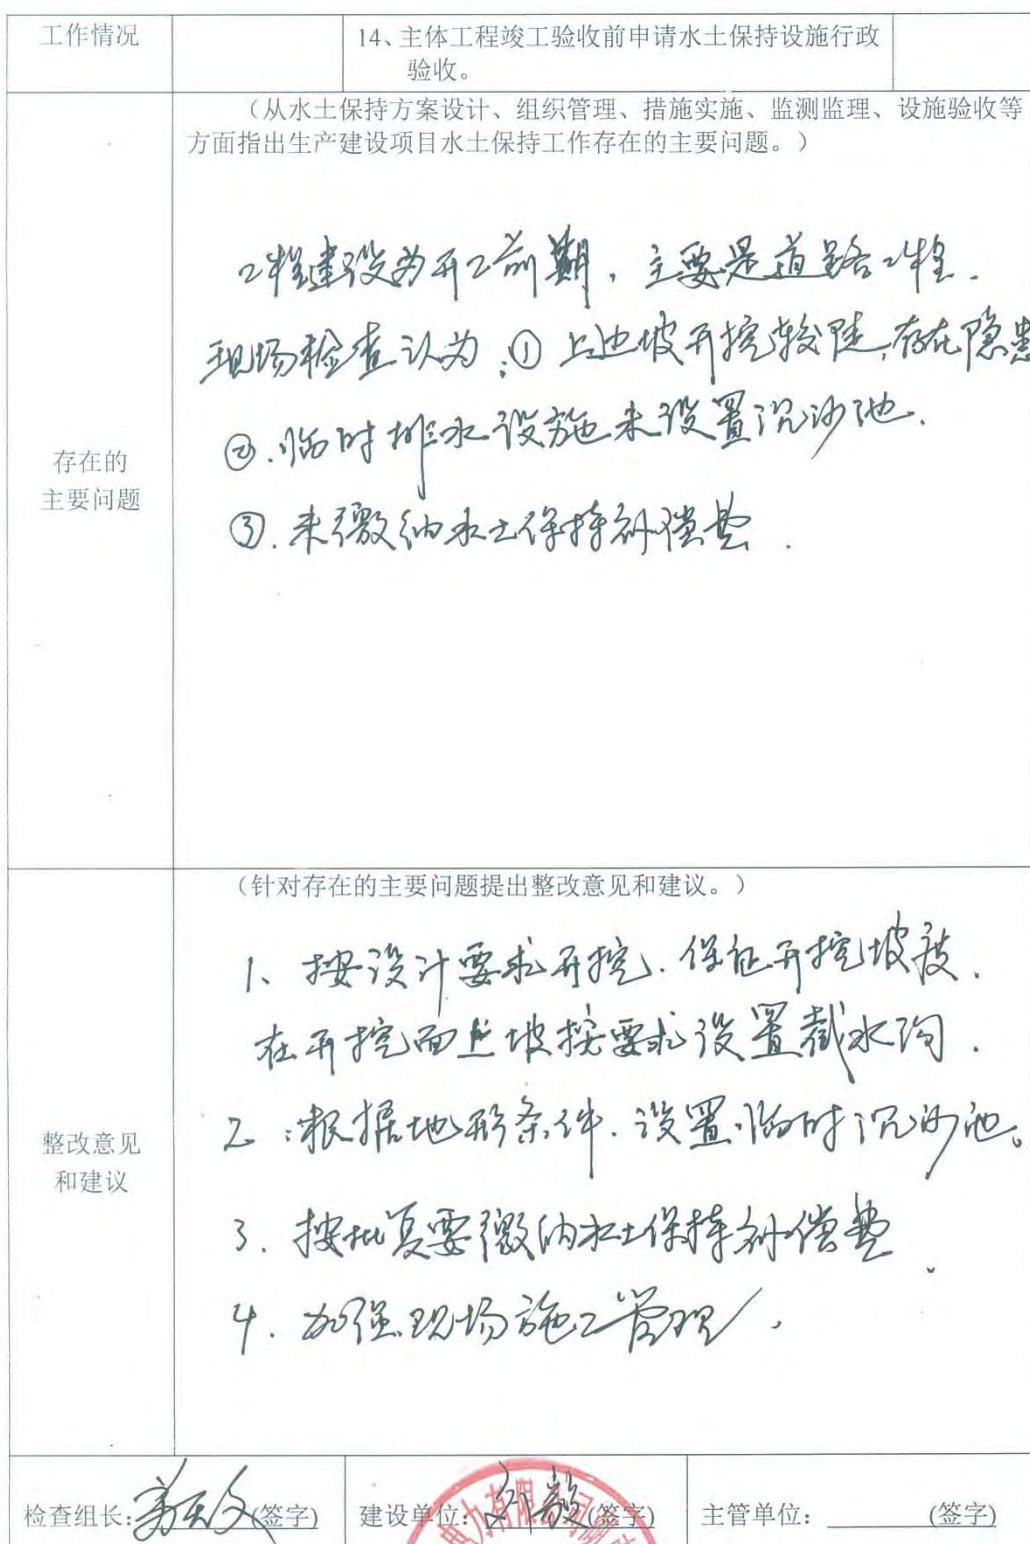 工作情况
14、主体工程竣工验收前申请水土保持设施行政
验收。
存在的
主要问题
（从水土保持方案设计、组织管理、措施实施、监测监理、设施验收等
方面指出生产建设项目水土保持工作存在的主要问题。）
工程建设为开工前期，主要是道路工程.
现场检查认为:①上边坡开挖较陡,存在隐患
②.临时排水设施未设置沉沙池.
③.未缴纳水土保持补偿费.
整改意见
和建议
（针对存在的主要问题提出整改意见和建议。）
1、按设计要求开挖.保证开挖坡度.
在开挖面上坡按要求设置截水沟.
2:根据地形条件.设置临时沉沙池。
3.按批复要缴纳水土保持补偿费.
4.加强现场施工管理.
检查组长: (签字)
建设单位: (签字)
主管单位: (签字)
力有限公司